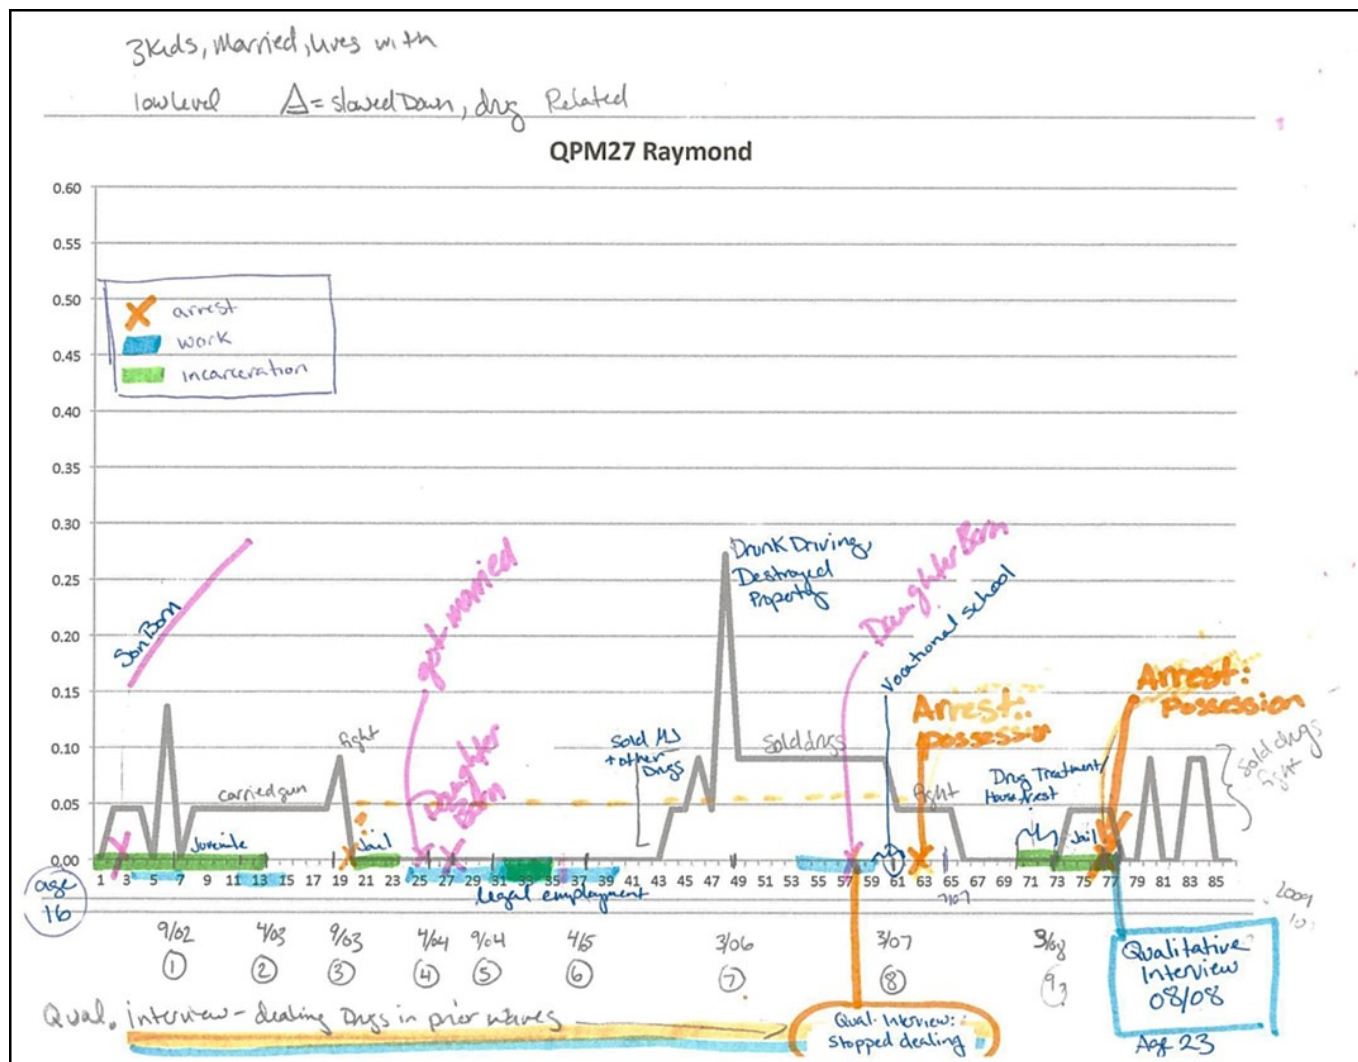 3 Kids, Married, lives with
low level Δ = slowed Down, drug Related
QPM27 Raymond
0.60
0.55
0.50
0.45
0.40
0.35
0.30
0.25
0.20
0.15
0.10
0.05
0.00
arrest
work
incarceration
Son Born
got married
Daughter
Born
fight
carried gun
Juvenile
Jail
Sold MJ
+ other
Drugs
Drunk Driving,
Destroyed
Property
Sold drugs
Daughter Born
Vocational school
Arrest:
possession
fight
Drug Treatment
House Arrest
Jail
Arrest:
Possession
Sold drugs
fight
1 3 5 7 9 11 13 15 17 19 21 23 25 27 29 31 33 35 37 39 41 43 45 47 49 51 53 55 57 59 61 63 65 67 69 71 73 75 77 79 81 83 85
age
16
legal employment
7/07
2009
9/02 4/03 9/03 4/04 9/04 4/5 3/06 3/07 3/08
1 2 3 4 5 6 7 8 9
Qualitative
Interview
08/08
Age 23
Qual. interview - dealing Drugs in prior waves
Qual. Interview:
stopped dealing